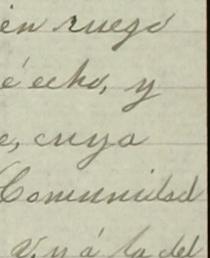 én ruego
é echo, y
e, cuya
Comunidad
y á la del